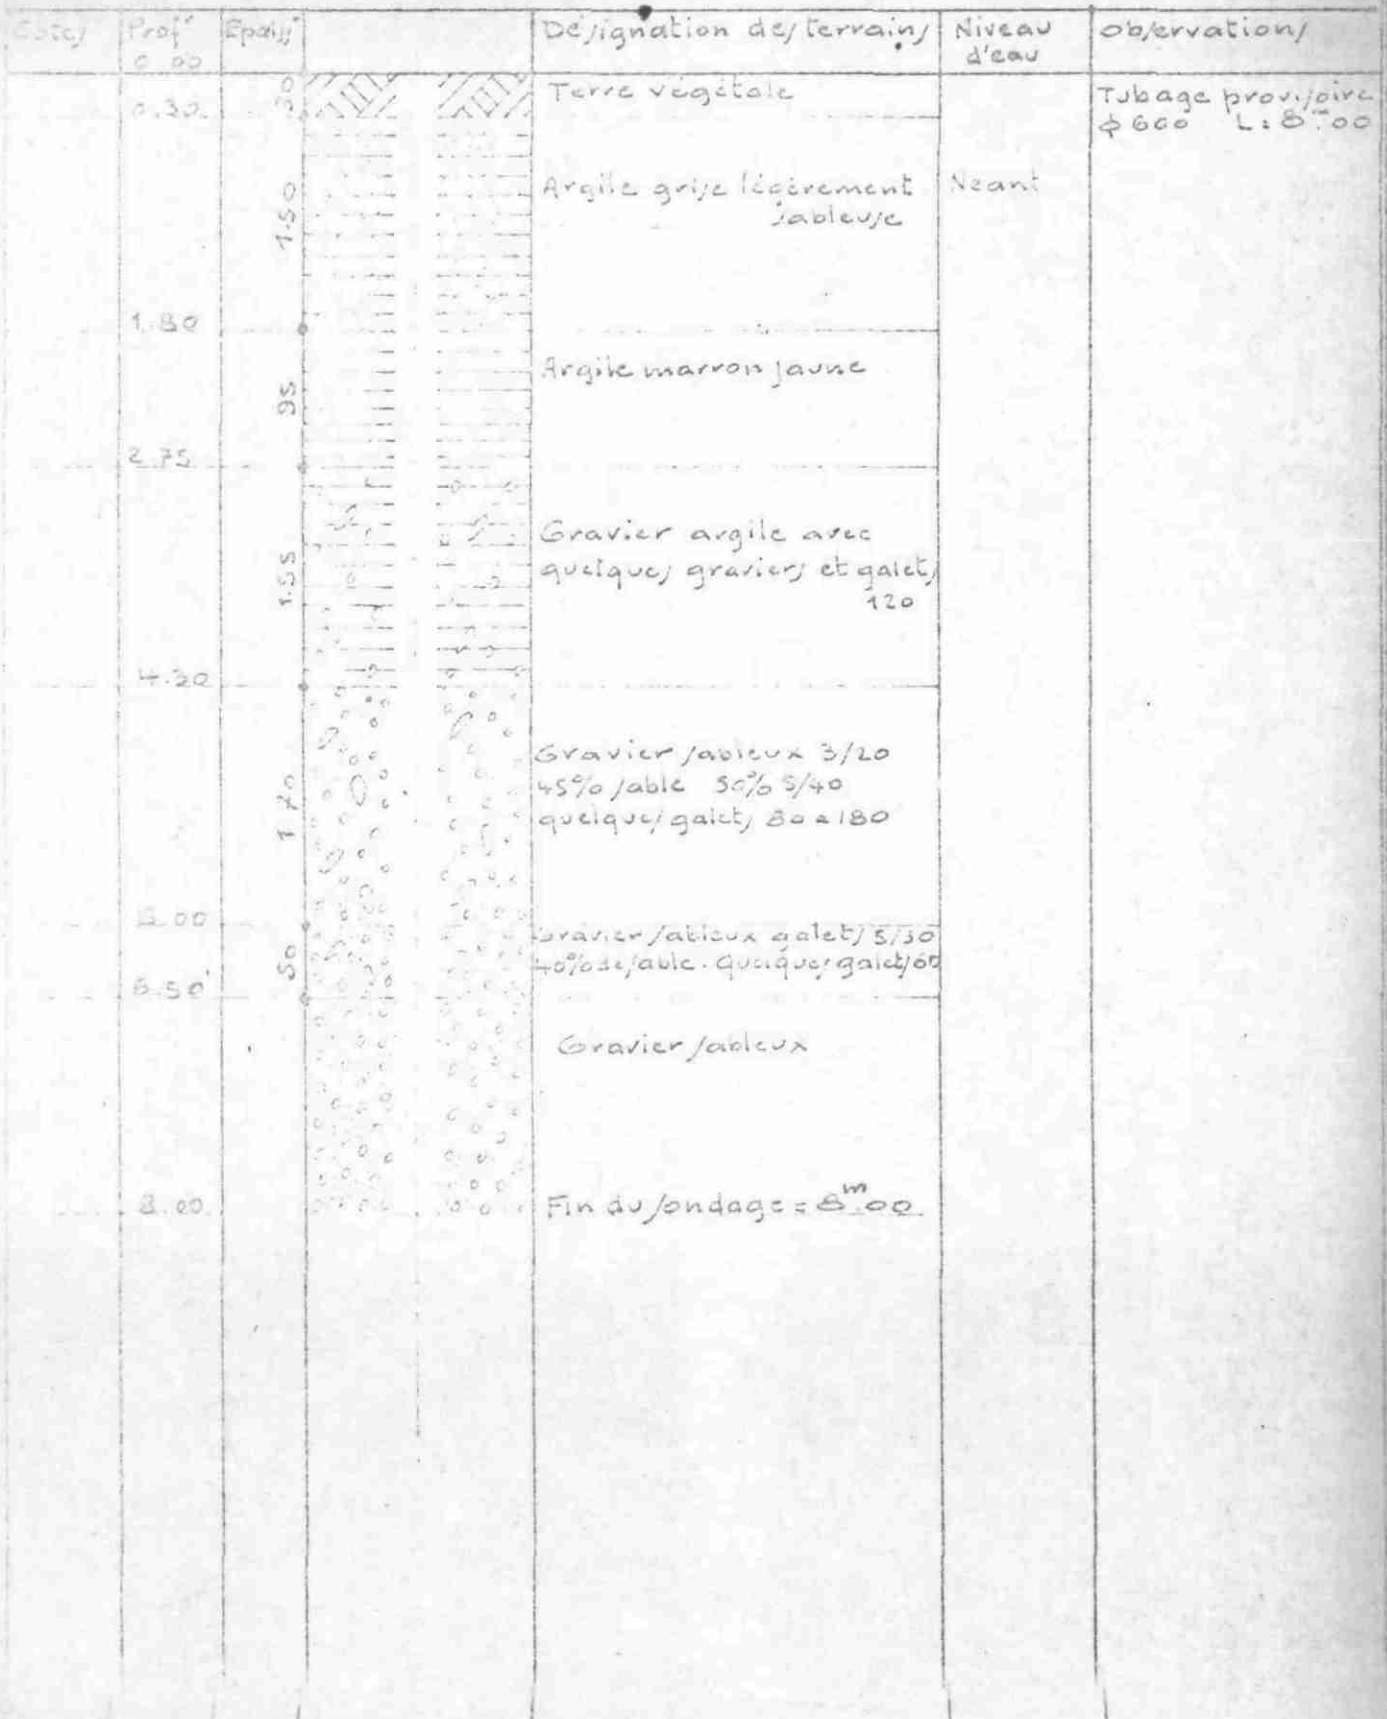 Cotes Prof^r Epaiss^r Désignation des terrains Niveau Observations
0.00 d'eau
.30 Terre végétale Tubage provisoire
0.30 ϕ 600 L: 8.^m00
1.50 Argile grise légèrement Néant
sableuse
1.80
95 Argile marron jaune
2.75
1.55 Gravier argile avec
quelques graviers et galets
120
4.30
1.70 Gravier sableux 3/20
45% sable 50% 5/40
quelques galets 80 a 180
6.00
50 Gravier sableux galets 5/30
40% de sable. Quelques galets 60
6.50
Gravier sableux
8.00 Fin du sondage = 8.^m00